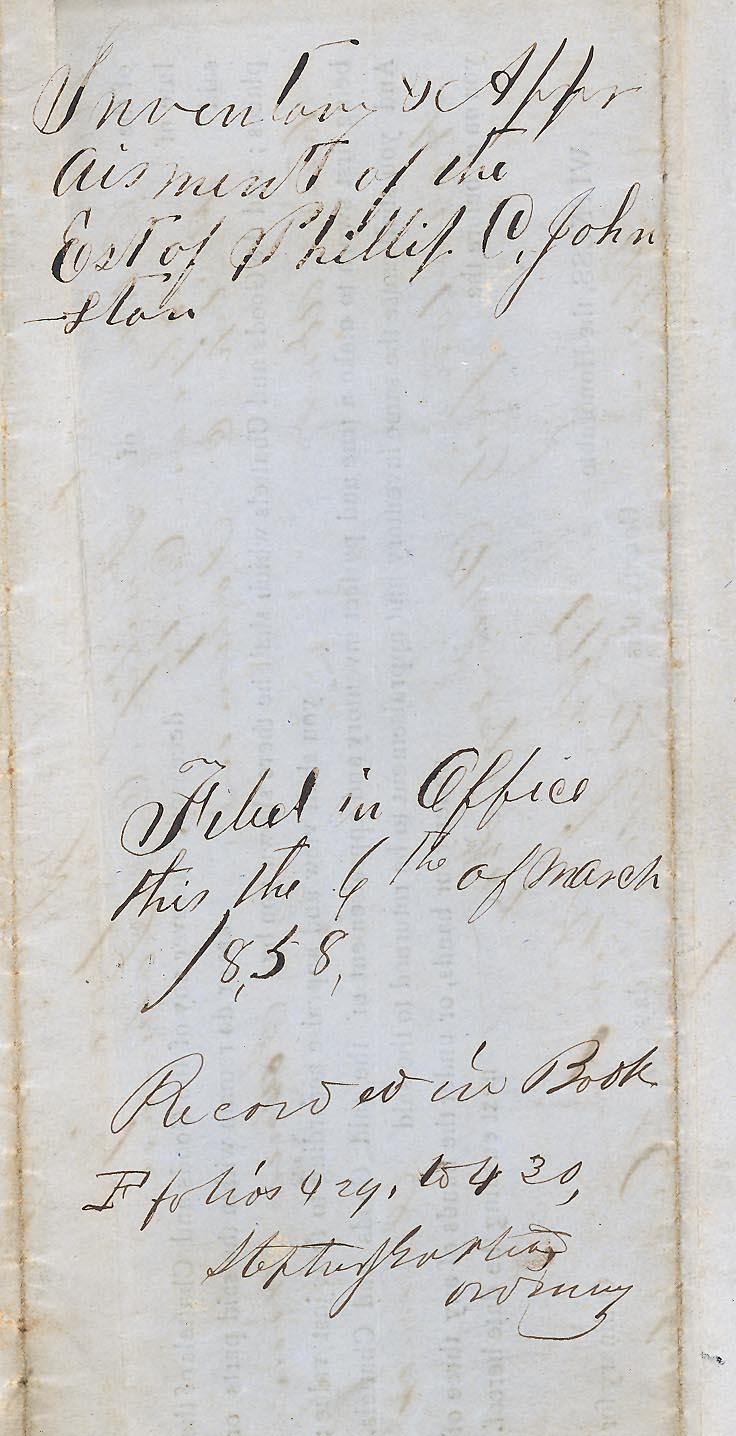 Inventory & Appr
aisment of the
Est of Phillip C, John
ston
Filed in Office
this the 6th of March
1858,
Recorded in Book
F folios 429, to 430,
ordinary